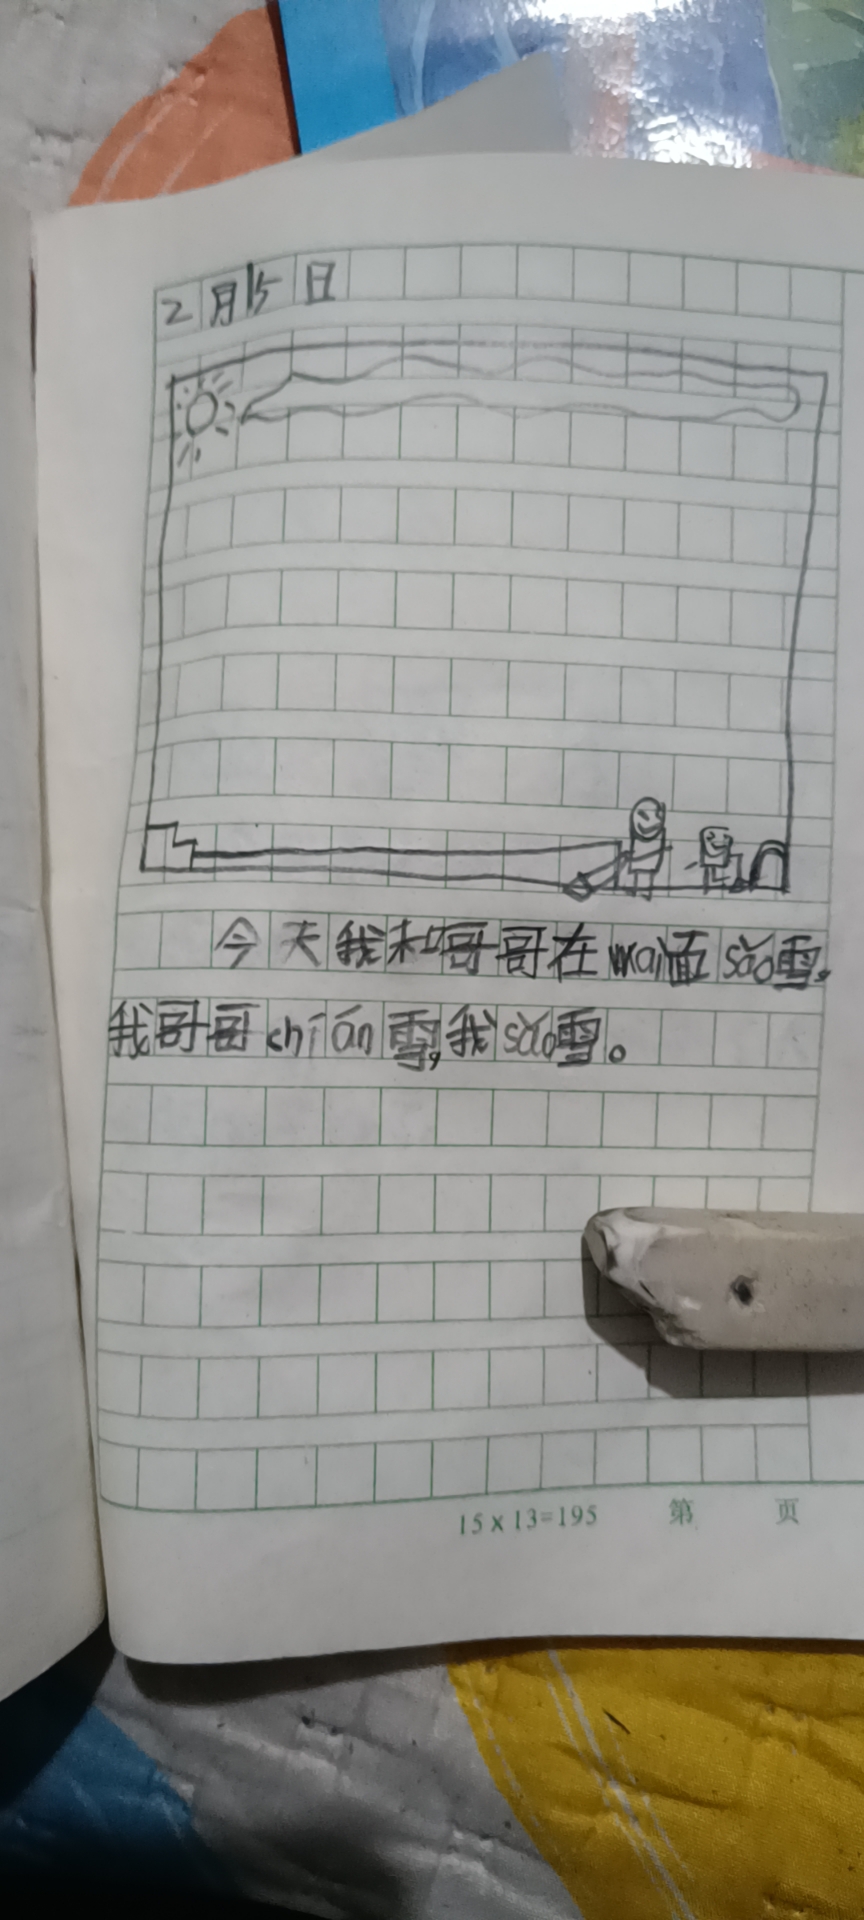 2月15日
今天我和哥哥在wai面sǎo雪。
我哥哥chián雪,我sǎo雪。
15×13=195 第 页